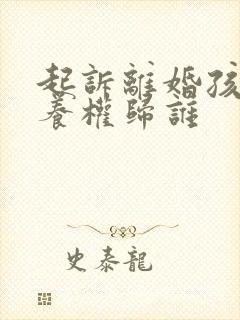 起訴離婚孩
養權歸誰
史泰龍